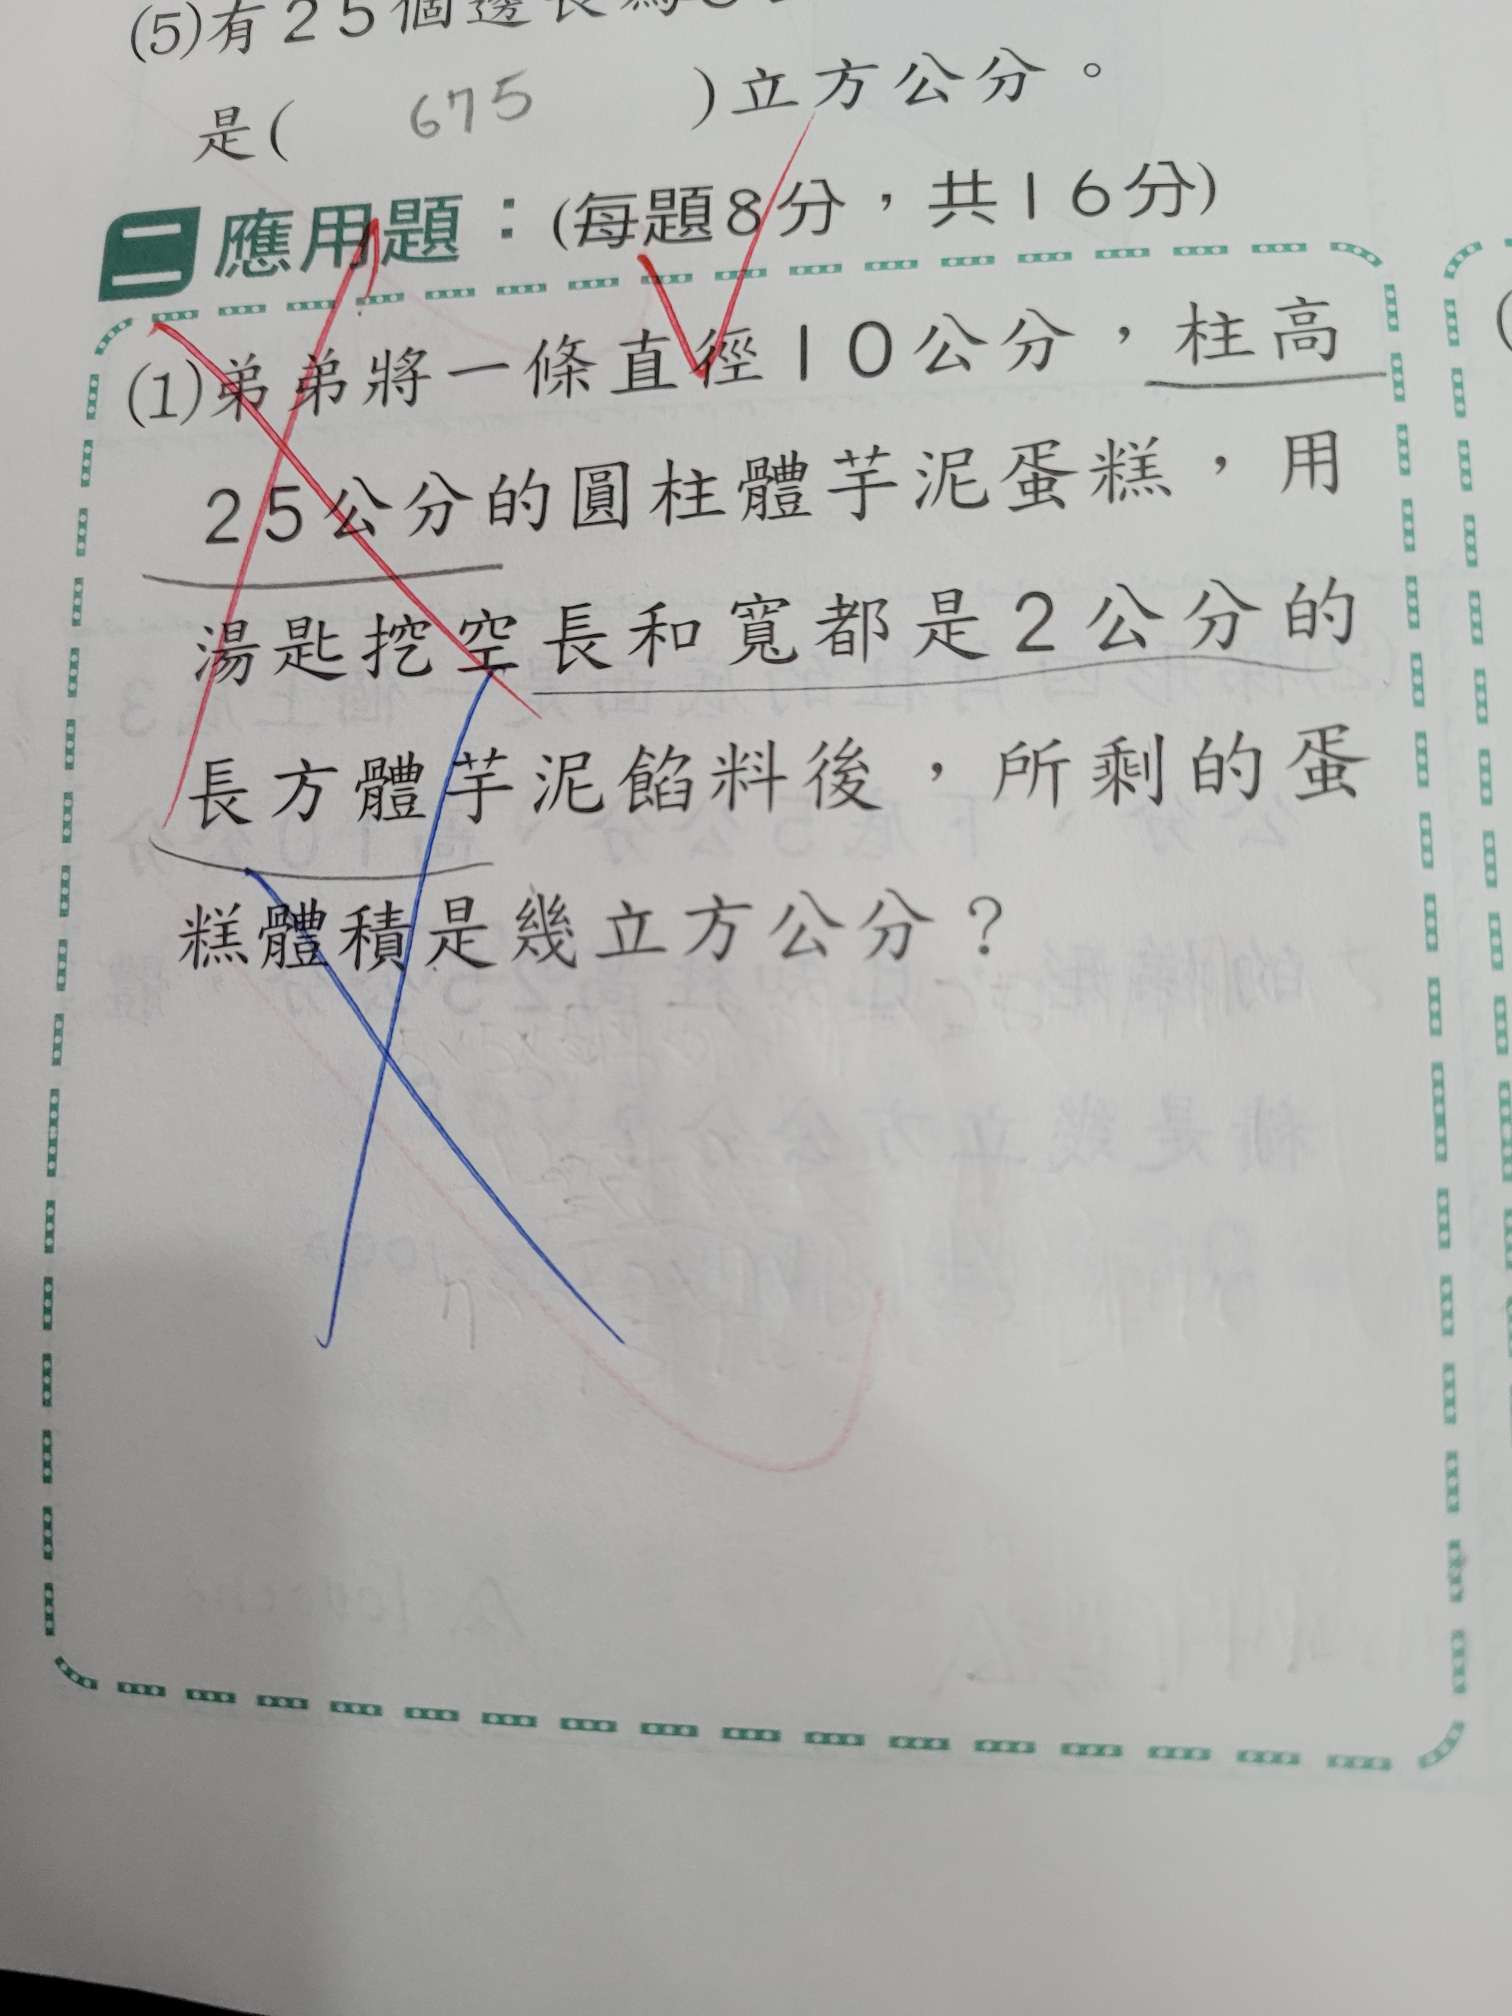 (5)有25個邊長為
是( 675 )立方公分。
二 應用題：(每題8分，共16分)
(1)弟弟將一條直徑10公分，柱高
25公分的圓柱體芋泥蛋糕，用
湯匙挖空長和寬都是2公分的
長方體芋泥餡料後，所剩的蛋
糕體積是幾立方公分？